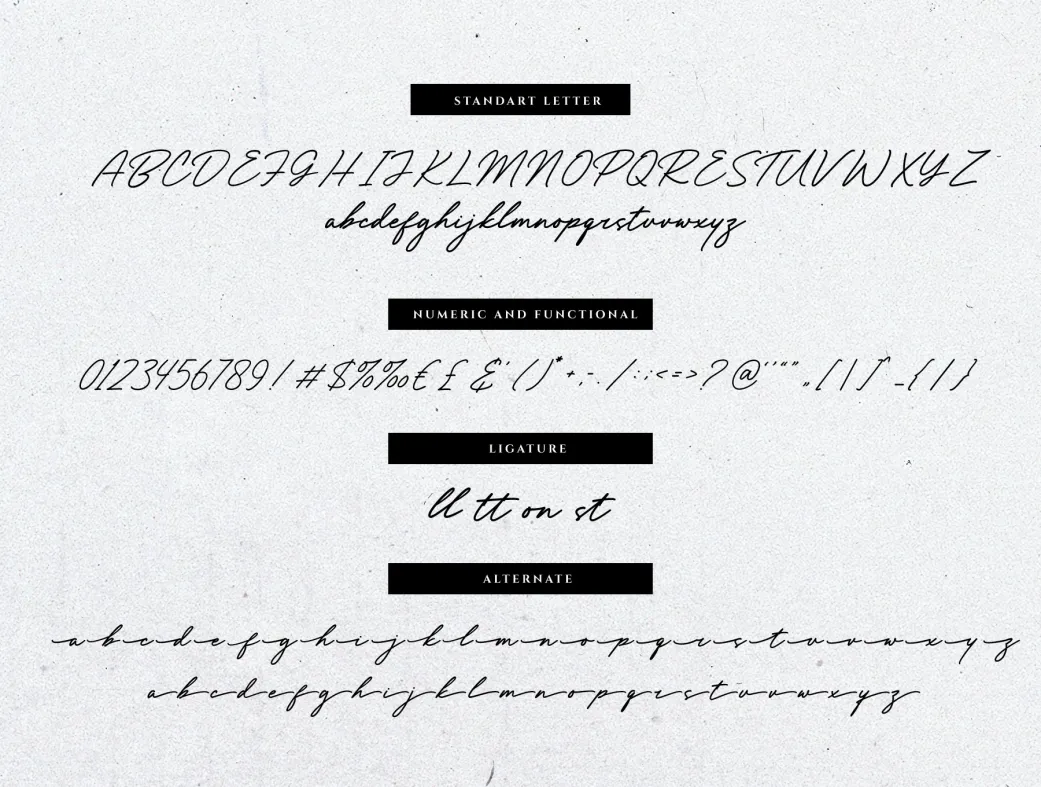 STANDART LETTER
ABCDEFGHIJKLMNOPQRESTUVWXYZ
abcdefghijklmnopqrstuvwxyz
NUMERIC AND FUNCTIONAL
0123456789!#$%‰€£&'()*+,-./:;<=>?@‘’“”„[\]^_{|}
LIGATURE
ll tt on st
ALTERNATE
a b c d e f g h i j k l m n o p q r s t u v w x y z
a b c d e f g h i j k l m n o p q r s t u v w x y z